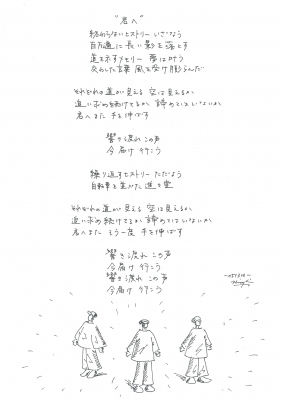 "君へ"
終わらないヒストリー いざなう
自転車に長い影を落とす
道を示すメモリー 夢は叶う
交わした言葉 風を受け膨らんだ
それぞれの道が見える 空は見えるか
追い求め続けてるか 諦めてはいないか
君へまた 手を伸ばす
響き渡れ この声
今届け 行こう
繰り返すヒストリー ただよう
自転車を
それぞれの道が見える 空は見えるか
追い求め続けてるか 諦めてはいないか
君へまた もう一度 手を伸ばす
響き渡れ この声
今届け 行こう
響き渡れ この声
今届け 行こう